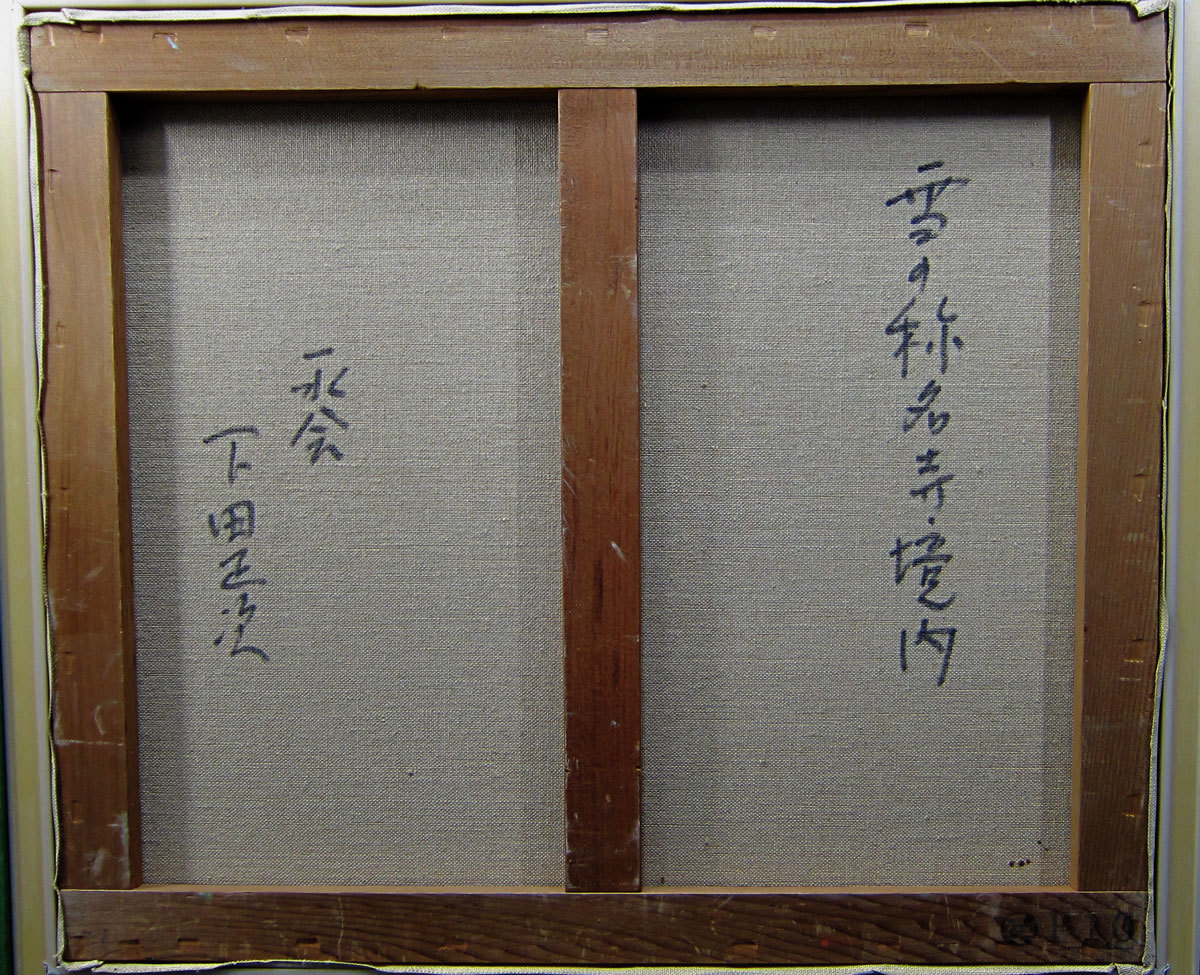 雪の称名寺境内
一水会
下田正次
F10